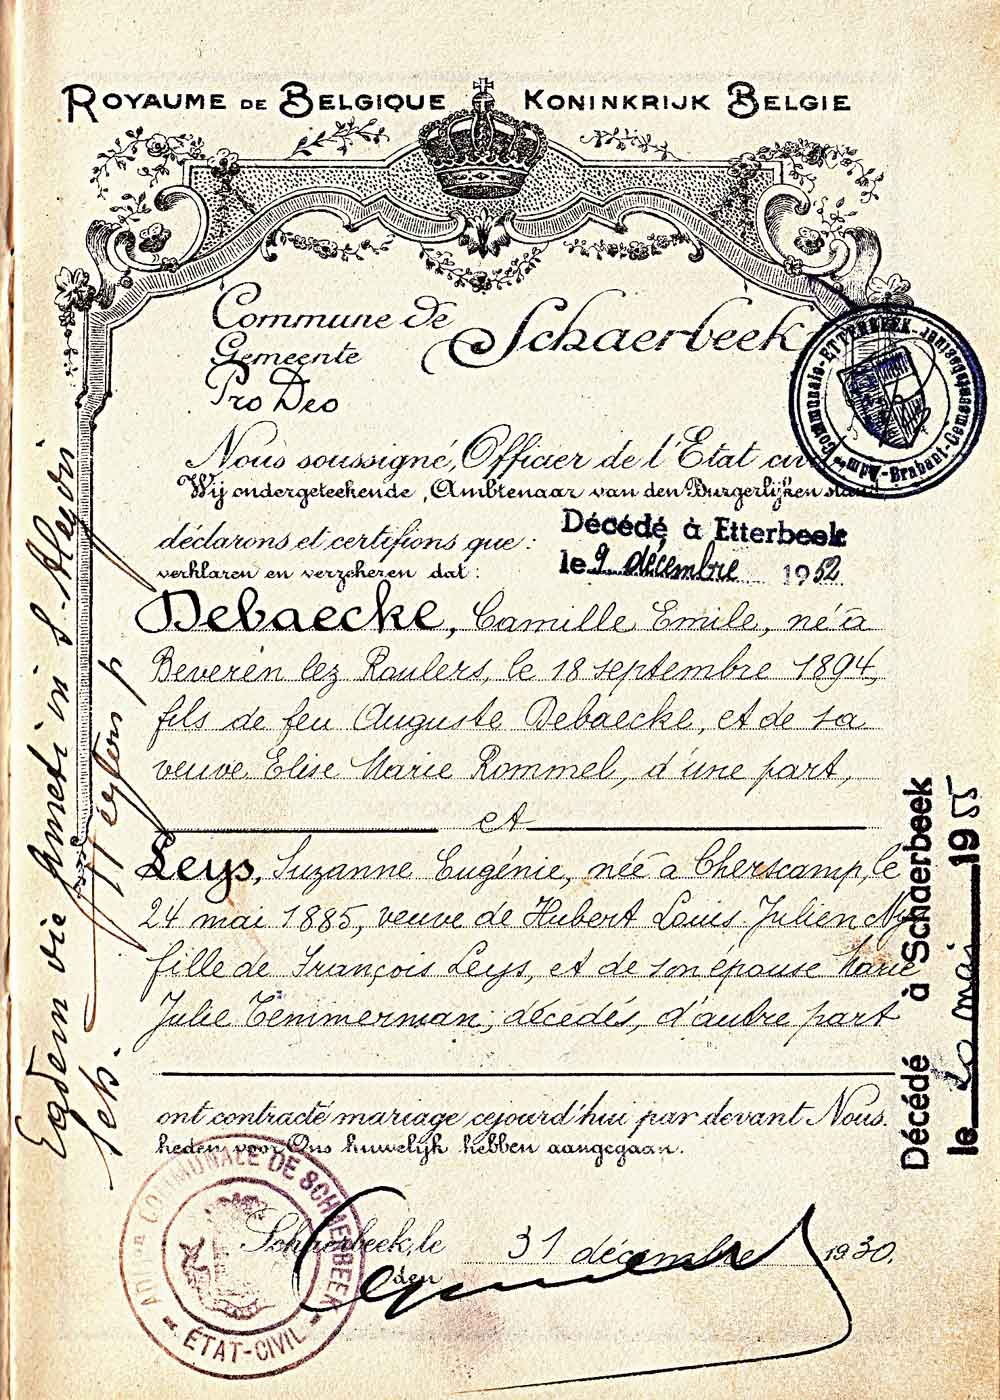 ROYAUME DE BELGIQUE KONINKRIJK BELGIE
Commune de Schaerbeek
Gemeente
Pro Deo
Nous soussigné, Officier de l'Etat civ
Wij ondergeteekende, Ambtenaar van den Burgerlijken stand,
déclarons et certifions que :
verklaren en verzekeren dat :
Décédé à Etterbeek
le 9 décembre 1952
Debaecke, Camille Emile, né à
Beveren lez Roulers, le 18 septembre 1894,
fils de feu Auguste Debaecke, et de sa
veuve Elise Marie Rommel, d'une part,
et
Leys, Suzanne Eugénie, née à Cherscamp, le
24 mai 1885, veuve de Hubert Louis Julien
fille de François Leys, et de son épouse Marie
Julie Temmerman, décédés, d'autre part
ont contracté mariage cejourd'hui par devant Nous.
heden voor Ons huwelijk hebben aangegaan.
Schaerbeek, le 31 décembre 1930.
den
COMMUNALE DE SCHAERBEEK
ÉTAT-CIVIL
Décédé à Schaerbeek
le mai 1955